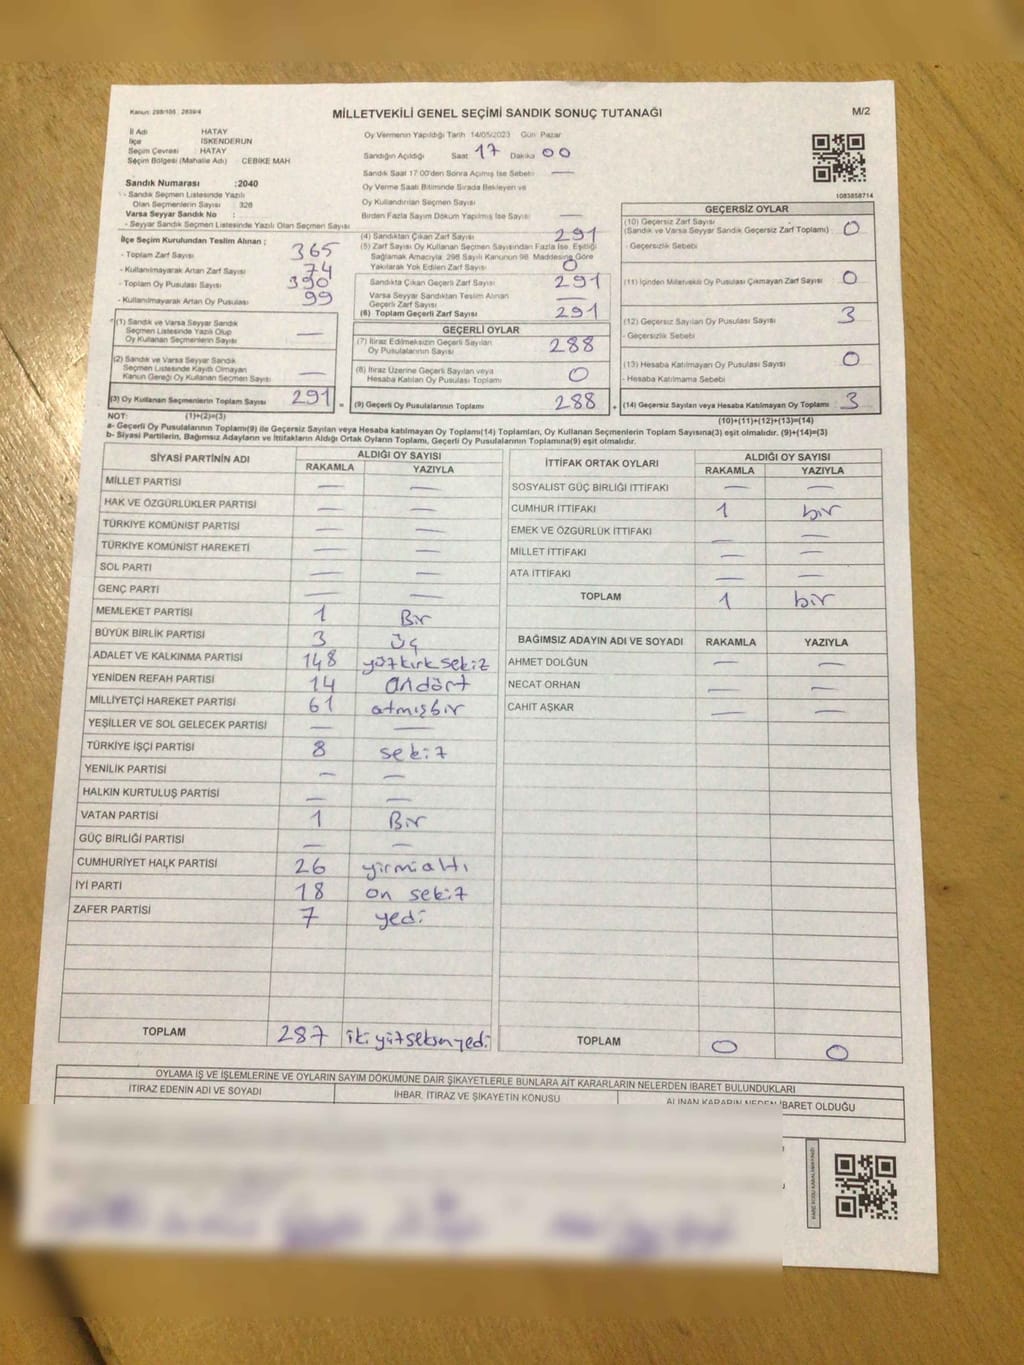 Kanun: 298/105 , 2839/4
MİLLETVEKİLİ GENEL SEÇİMİ SANDIK SONUÇ TUTANAĞI
M/2
İl Adı HATAY
İlçe İSKENDERUN
Seçim Çevresi HATAY
Seçim Bölgesi (Mahalle Adı) CEBİKE MAH
Sandık Numarası :2040
- Sandık Seçmen Listesinde Yazılı
Olan Seçmenlerin Sayısı 328
Varsa Seyyar Sandık No :
- Seyyar Sandık Seçmen Listesinde Yazılı Olan Seçmen Sayısı
Oy Vermenin Yapıldığı Tarih 14/05/2023 Gün Pazar
Sandığın Açıldığı Saat 17 Dakika 00
Sandık Saat 17:00'den Sonra Açılmış İse Sebebi —
Oy Verme Saati Bitiminde Sırada Bekleyen ve
Oy Kullandırılan Seçmen Sayısı
Birden Fazla Sayım Döküm Yapılmış İse Sayısı —
1083858714
İlçe Seçim Kurulundan Teslim Alınan ;
- Toplam Zarf Sayısı 365
- Kullanılmayarak Artan Zarf Sayısı 74
- Toplam Oy Pusulası Sayısı 390
- Kullanılmayarak Artan Oy Pusulası 99
(1) Sandık ve Varsa Seyyar Sandık
Seçmen Listesinde Yazılı Olup
Oy Kullanan Seçmenlerin Sayısı —
(2) Sandık ve Varsa Seyyar Sandık
Seçmen Listesinde Kayıtlı Olmayan
Kanun Gereği Oy Kullanan Seçmen Sayısı —
(3) Oy Kullanan Seçmenlerin Toplam Sayısı 291 =
(1)+(2)=(3)
(4) Sandıktan Çıkan Zarf Sayısı 291
(5) Zarf Sayısı Oy Kullanan Seçmen Sayısından Fazla İse, Eşitliği
Sağlamak Amacıyla, 298 Sayılı Kanunun 98. Maddesine Göre
Yakılarak Yok Edilen Zarf Sayısı 0
Sandıkta Çıkan Geçerli Zarf Sayısı 291
Varsa Seyyar Sandıktan Teslim Alınan
Geçerli Zarf Sayısı —
(6) Toplam Geçerli Zarf Sayısı 291
GEÇERLİ OYLAR
(7) İtiraz Edilmeksizin Geçerli Sayılan
Oy Pusulalarının Sayısı 288
(8) İtiraz Üzerine Geçerli Sayılan veya
Hesaba Katılan Oy Pusulası Toplamı 0
(9) Geçerli Oy Pusulalarının Toplamı 288 +
GEÇERSİZ OYLAR
(10) Geçersiz Zarf Sayısı
(Sandık ve Varsa Seyyar Sandık Geçersiz Zarf Toplamı) 0
- Geçersizlik Sebebi
(11) İçinden Milletvekili Oy Pusulası Çıkmayan Zarf Sayısı 0
(12) Geçersiz Sayılan Oy Pusulası Sayısı 3
- Geçersizlik Sebebi
(13) Hesaba Katılmayan Oy Pusulası Sayısı 0
- Hesaba Katılmama Sebebi
(14) Geçersiz Sayılan veya Hesaba Katılmayan Oy Toplamı 3
(10)+(11)+(12)+(13)=(14)
NOT:
a- Geçerli Oy Pusulalarının Toplamı(9) ile Geçersiz Sayılan veya Hesaba katılmayan Oy Toplamı(14) Toplamları, Oy Kullanan Seçmenlerin Toplam Sayısına(3) eşit olmalıdır. (9)+(14)=(3)
b- Siyasi Partilerin, Bağımsız Adayların ve İttifakların Aldığı Ortak Oyların Toplamı, Geçerli Oy Pusulalarının Toplamına(9) eşit olmalıdır.
SİYASİ PARTİNİN ADI ALDIĞI OY SAYISI
RAKAMLA YAZIYLA
MİLLET PARTİSİ — —
HAK VE ÖZGÜRLÜKLER PARTİSİ — —
TÜRKİYE KOMÜNİST PARTİSİ — —
TÜRKİYE KOMÜNİST HAREKETİ — —
SOL PARTİ — —
GENÇ PARTİ — —
MEMLEKET PARTİSİ 1 Bir
BÜYÜK BİRLİK PARTİSİ 3 üç
ADALET VE KALKINMA PARTİSİ 148 yüzkırk sekiz
YENİDEN REFAH PARTİSİ 14 ondört
MİLLİYETÇİ HAREKET PARTİSİ 61 atmışbir
YEŞİLLER VE SOL GELECEK PARTİSİ — —
TÜRKİYE İŞÇİ PARTİSİ 8 sekiz
YENİLİK PARTİSİ — —
HALKIN KURTULUŞ PARTİSİ — —
VATAN PARTİSİ 1 Bir
GÜÇ BİRLİĞİ PARTİSİ — —
CUMHURİYET HALK PARTİSİ 26 yirmialtı
İYİ PARTİ 18 on sekiz
ZAFER PARTİSİ 7 yedi
TOPLAM 287 ikiyüzseksenyedi
İTTİFAK ORTAK OYLARI ALDIĞI OY SAYISI
RAKAMLA YAZIYLA
SOSYALİST GÜÇ BİRLİĞİ İTTİFAKI — —
CUMHUR İTTİFAKI 1 bir
EMEK VE ÖZGÜRLÜK İTTİFAKI — —
MİLLET İTTİFAKI — —
ATA İTTİFAKI — —
TOPLAM 1 bir
BAĞIMSIZ ADAYIN ADI VE SOYADI RAKAMLA YAZIYLA
AHMET DOLĞUN — —
NECAT ORHAN — —
CAHİT AŞKAR — —
TOPLAM 0 0
OYLAMA İŞ VE İŞLEMLERİNE VE OYLARIN SAYIM DÖKÜMÜNE DAİR ŞİKAYETLERLE BUNLARA AİT KARARLARIN NELERDEN İBARET BULUNDUKLARI
İTİRAZ EDENİN ADI VE SOYADI İHBAR, İTİRAZ VE ŞİKAYETİN KONUSU ALINAN KARARIN NEDEN İBARET OLDUĞU